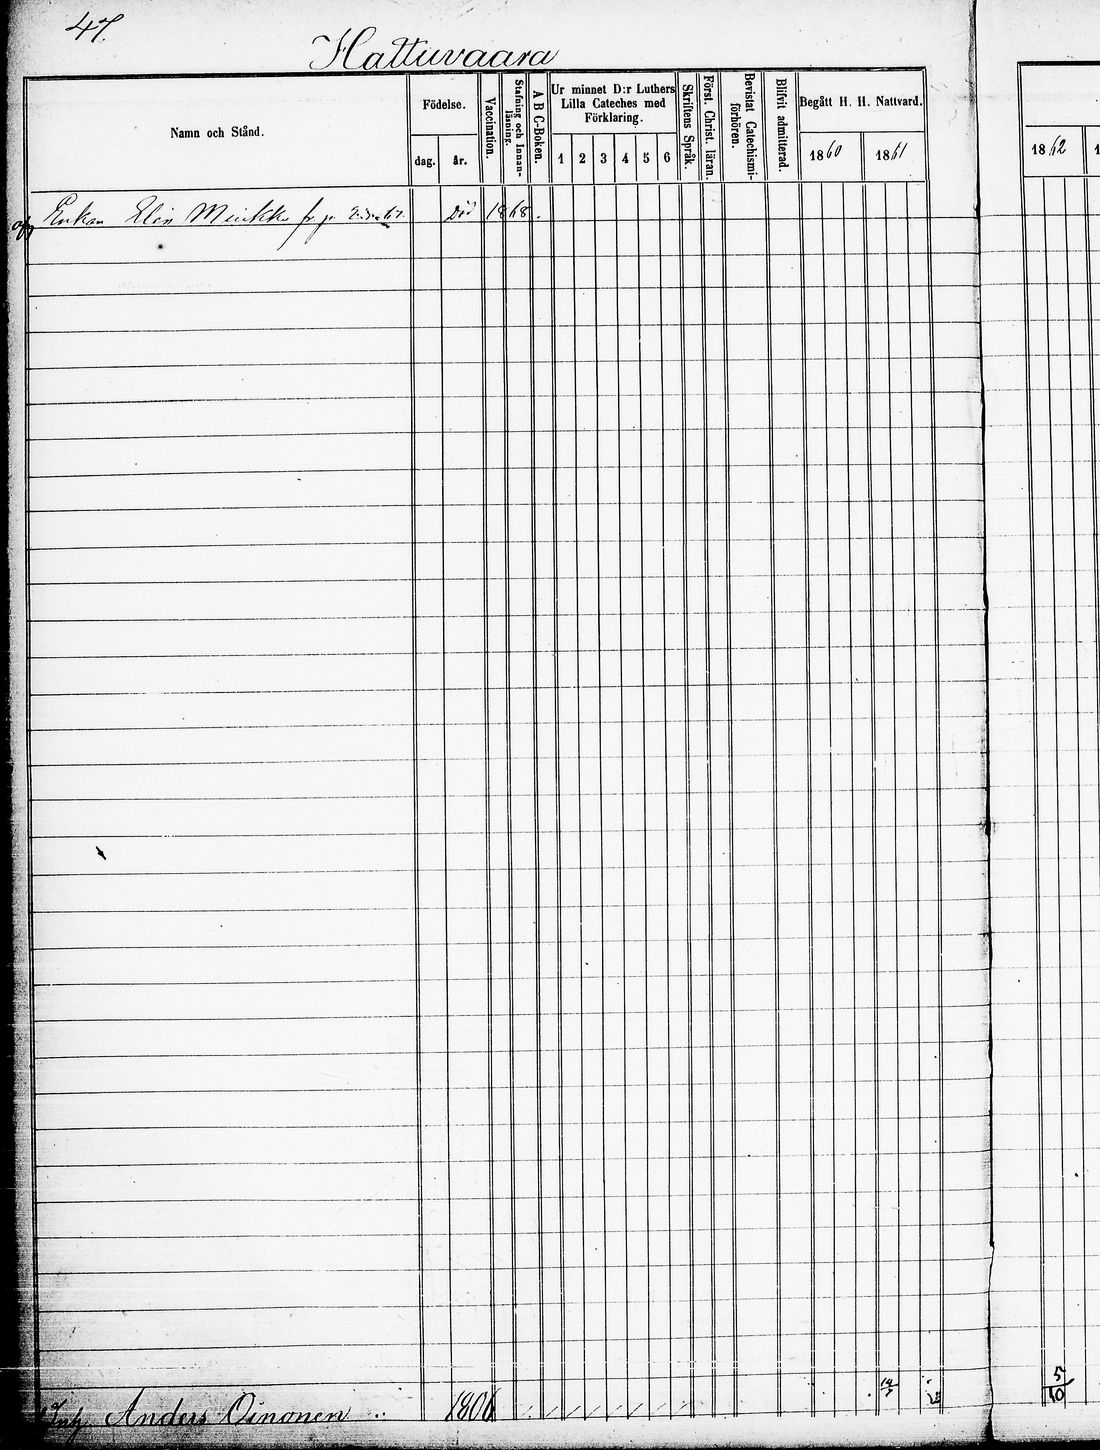 47.
Hattuvaara
Namn och Stånd.
Födelse.
dag. år.
Vaccination.
Stafning och Innanläsning.
A B C-Boken.
Ur minnet D:r Luthers Lilla Cateches med Förklaring.
1 2 3 4 5 6
Skriftens Språk.
Först. Christ. läran.
Bevistat Catechismi-förhören.
Blifvit admitterad.
Begått H. H. Nattvard.
1860 1861
1862
Enkan Elin Död 1868.
Anders Oinonen 1806
5/10